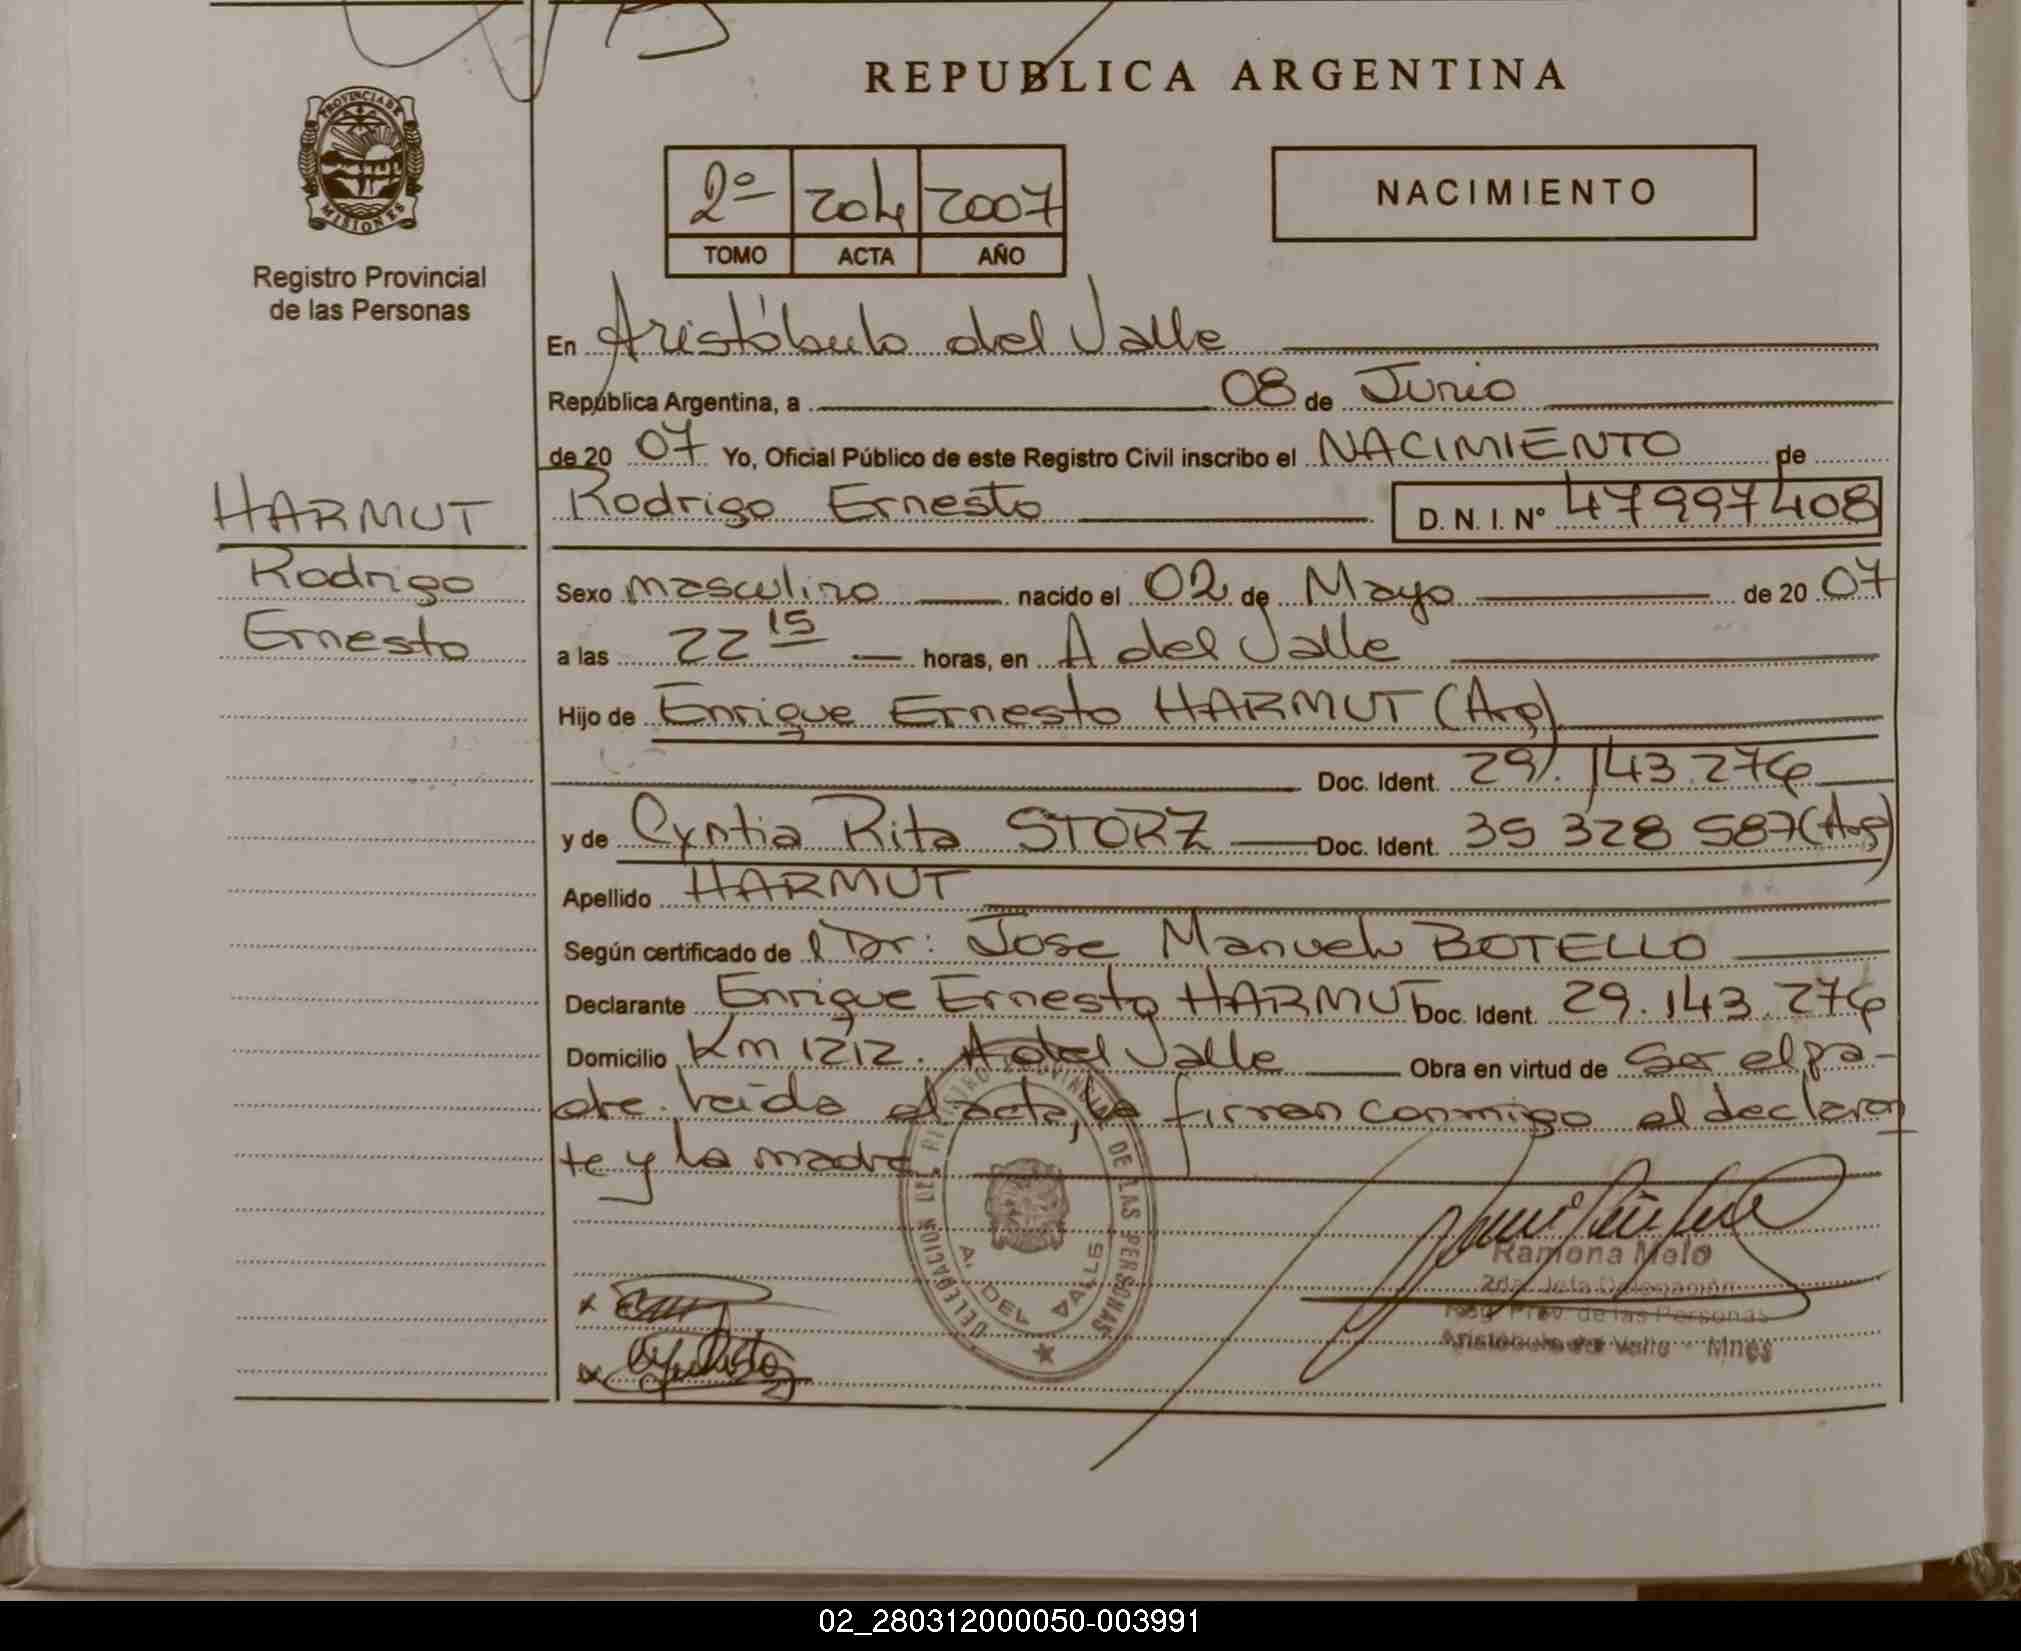 REPUBLICA ARGENTINA
PROVINCIA DE MISIONES
Registro Provincial
de las Personas
2º 204 2007
TOMO ACTA AÑO
NACIMIENTO
En Aristóbulo del Valle
República Argentina, a 08 de Junio
de 20 07 Yo, Oficial Público de este Registro Civil inscribo el NACIMIENTO de
Rodrigo Ernesto D. N. I. Nº 47997408
HARMUT
Rodrigo
Ernesto
Sexo masculino nacido el 02 de Mayo de 20 07
a las 22 15 horas, en A del Valle
Hijo de Enrique Ernesto HARMUT (Arg)
Doc. Ident. 29.143.276
y de Cyntia Rita STORZ Doc. Ident. 35 328 587 (Arg)
Apellido HARMUT
Según certificado de Dr: Jose Manuel BOTELLO
Declarante Enrique Ernesto HARMUT Doc. Ident. 29.143.276
Domicilio Km 1212. A del Valle Obra en virtud de ser el pa-
dre. Leida el acta, la firman conmigo el declaran
te y la madre
DELEGACION DEL REGISTRO PROVINCIAL DE LAS PERSONAS
A. DEL VALLE
Ramona Melo
2da. Jefa Delegación
Reg. Prov. de las Personas
Aristóbulo del Valle - Mnes
02_280312000050-003991